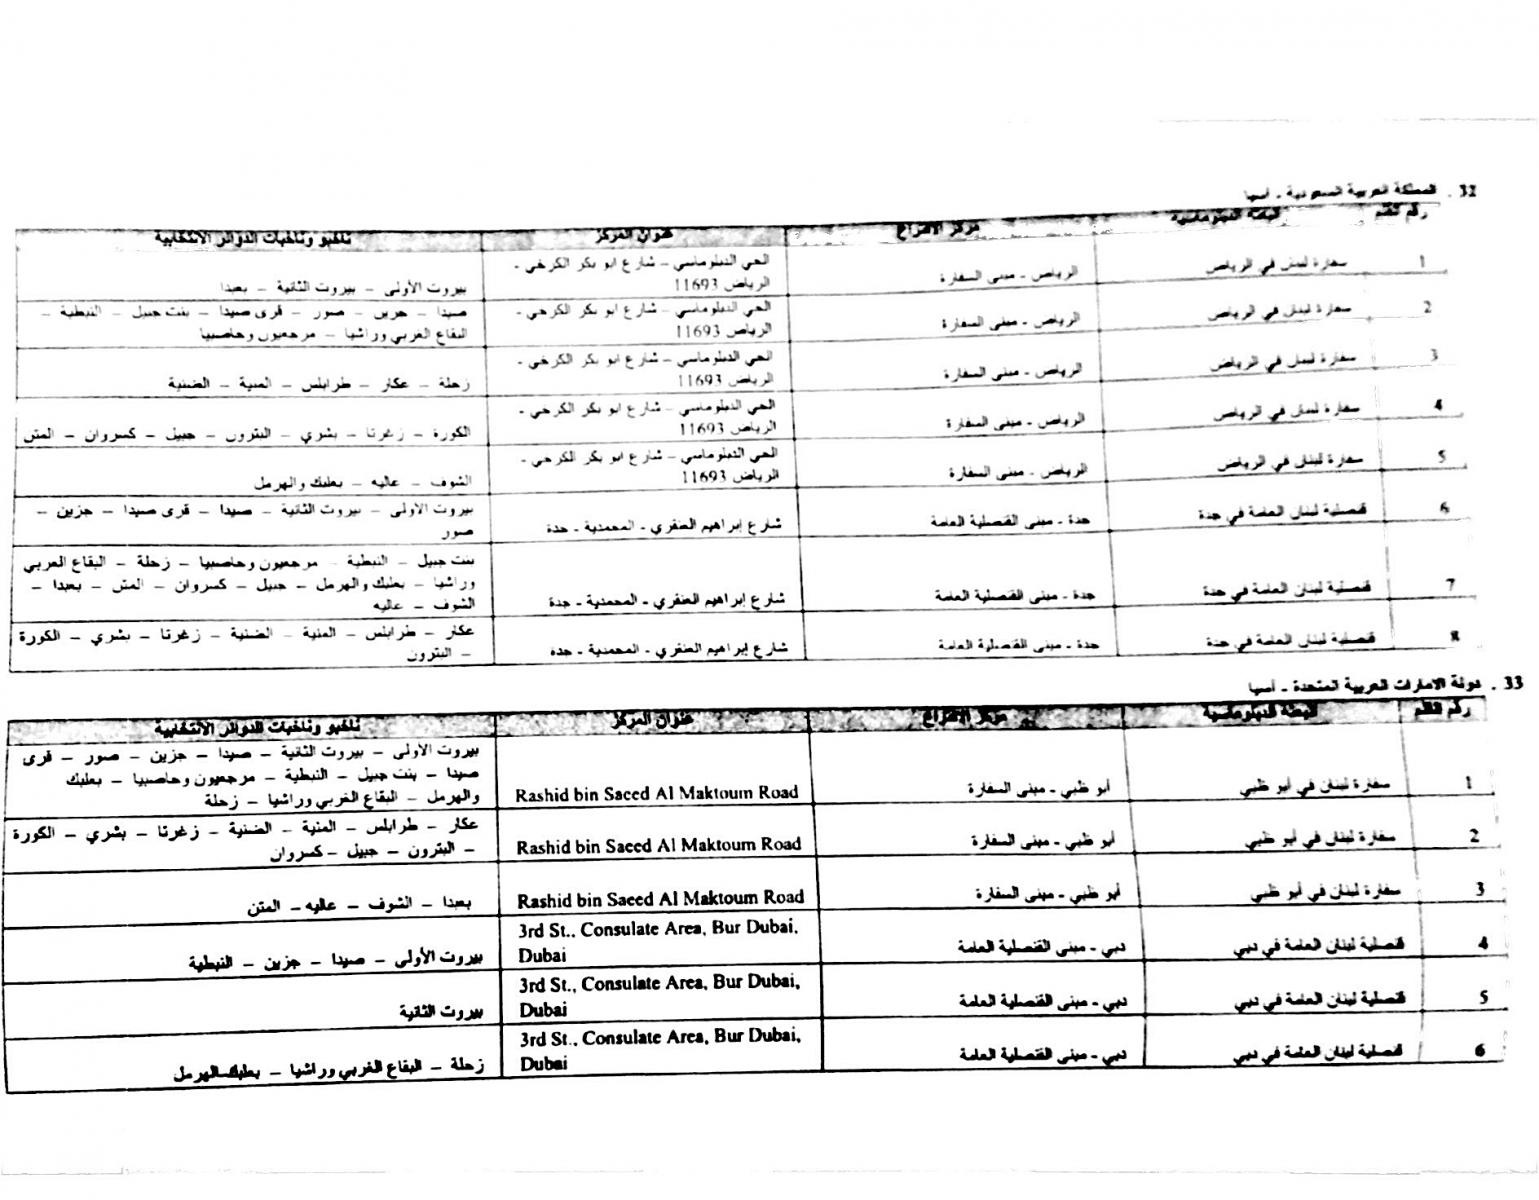 32 . المملكة العربية السعودية - آسيا
رقم القلم البعثة الدبلوماسية مركز الاقتراع عنوان المركز ناخبو وناخبات الدوائر الانتخابية
1 سفارة لبنان في الرياض الرياض - مبنى السفارة الحي الدبلوماسي – شارع ابو بكر الكرخي -
الرياض 11693 بيروت الأولى – بيروت الثانية – بعبدا
2 سفارة لبنان في الرياض الرياض - مبنى السفارة الحي الدبلوماسي – شارع ابو بكر الكرخي - صيدا – جزين – صور – قرى صيدا – بنت جبيل – النبطية –
الرياض 11693 البقاع الغربي وراشيا – مرجعيون وحاصبيا
3 سفارة لبنان في الرياض الرياض - مبنى السفارة الحي الدبلوماسي – شارع ابو بكر الكرخي -
الرياض 11693 زحلة – عكار – طرابلس – المنية – الضنية
4 سفارة لبنان في الرياض الرياض - مبنى السفارة الحي الدبلوماسي – شارع ابو بكر الكرخي -
الرياض 11693 الكورة – زغرتا – بشري – البترون – جبيل – كسروان – المتن
5 سفارة لبنان في الرياض الرياض - مبنى السفارة الحي الدبلوماسي – شارع ابو بكر الكرخي -
الرياض 11693 الشوف – عاليه – بعلبك والهرمل
6 قنصلية لبنان العامة في جدة جدة - مبنى القنصلية العامة شارع إبراهيم العنقري - المحمدية - جدة بيروت الأولى – بيروت الثانية – صيدا – قرى صيدا – جزين –
صور
7 قنصلية لبنان العامة في جدة جدة - مبنى القنصلية العامة شارع إبراهيم العنقري - المحمدية - جدة بنت جبيل – النبطية – مرجعيون وحاصبيا – زحلة – البقاع الغربي
وراشيا – بعلبك والهرمل – جبيل – كسروان – المتن – بعبدا –
الشوف – عاليه
8 قنصلية لبنان العامة في جدة جدة - مبنى القنصلية العامة شارع إبراهيم العنقري - المحمدية - جدة عكار – طرابلس – المنية – الضنية – زغرتا – بشري – الكورة
– البترون
33 . دولة الامارات العربية المتحدة - آسيا
رقم القلم البعثة الدبلوماسية مركز الاقتراع عنوان المركز ناخبو وناخبات الدوائر الانتخابية
1 سفارة لبنان في أبو ظبي أبو ظبي - مبنى السفارة Rashid bin Saeed Al Maktoum Road بيروت الأولى – بيروت الثانية – صيدا – جزين – صور – قرى
صيدا – بنت جبيل – النبطية – مرجعيون وحاصبيا – بعلبك
والهرمل – البقاع الغربي وراشيا – زحلة
2 سفارة لبنان في أبو ظبي أبو ظبي - مبنى السفارة Rashid bin Saeed Al Maktoum Road عكار – طرابلس – المنية – الضنية – زغرتا – بشري – الكورة
– البترون – جبيل – كسروان
3 سفارة لبنان في أبو ظبي أبو ظبي - مبنى السفارة Rashid bin Saeed Al Maktoum Road بعبدا – الشوف – عاليه – المتن
4 قنصلية لبنان العامة في دبي دبي - مبنى القنصلية العامة 3rd St., Consulate Area, Bur Dubai,
Dubai بيروت الأولى – صيدا – جزين – النبطية
5 قنصلية لبنان العامة في دبي دبي - مبنى القنصلية العامة 3rd St., Consulate Area, Bur Dubai,
Dubai بيروت الثانية
6 قنصلية لبنان العامة في دبي دبي - مبنى القنصلية العامة 3rd St., Consulate Area, Bur Dubai,
Dubai زحلة – البقاع الغربي وراشيا – بعلبك الهرمل